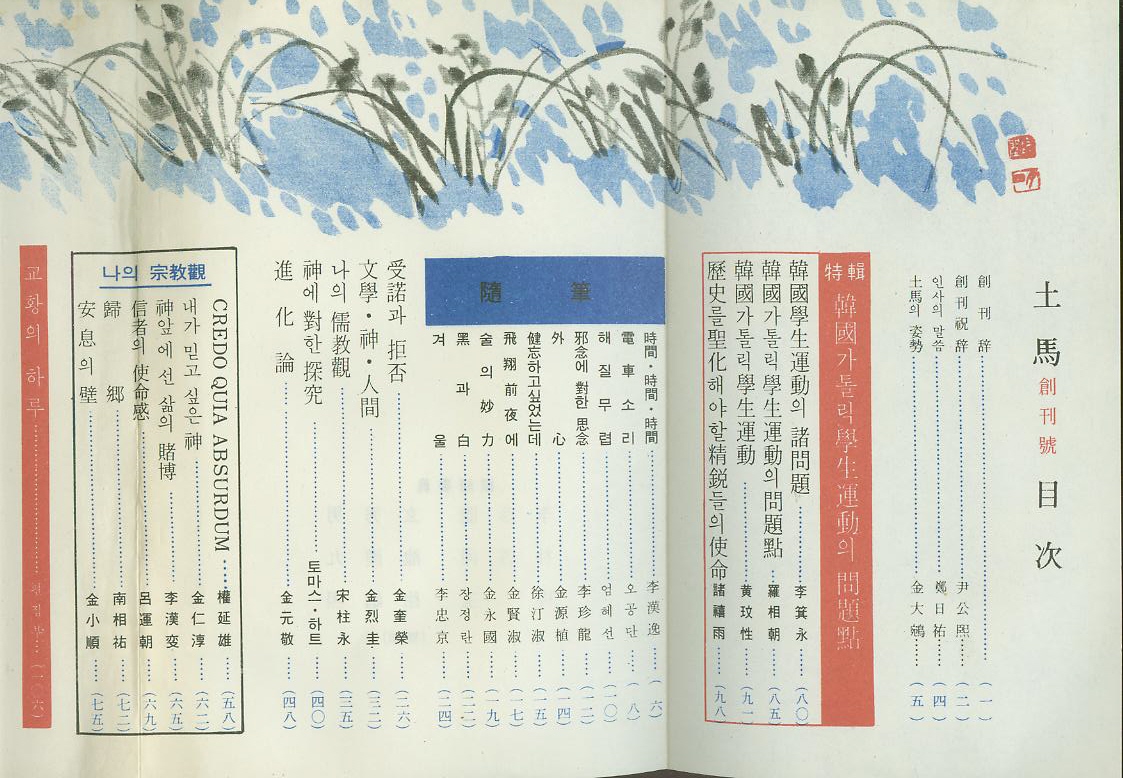 土馬 創刊號 目次
創刊辞 (一)
創刊祝辞 尹公熙 (二)
인사의 말씀 鄭日祐 (四)
土馬의 姿勢 金大 (五)
特輯 韓國가톨릭學生運動의 問題點
韓國學生運動의 諸問題 李箕永 (八〇)
韓國가톨릭 學生運動의 問題點 羅相朝 (八五)
韓國가톨릭 學生運動 黄玟性 (九一)
歷史를 聖化해야할 精鋭들의 使命 諸禧雨 (九八)
隨筆
時間・時間・時間 李漢逸 (六)
電車소리 오공단 (八)
해질무렵 엄혜선 (一〇)
邪念에 對한 思念 李珍龍 (一二)
外心 金源植 (一四)
健忘하고싶었는데 徐汀淑 (一五)
飛翔前夜에 金賢淑 (一七)
술의 妙力 金永國 (一九)
黑과 白 장정란 (二二)
겨울 李忠京 (二四)
受諾과 拒否 金奎榮 (二六)
文學・神・人間 金烈圭 (三二)
나의 儒教觀 宋柱永 (三五)
神에 對한 探究 토마스・하트 (四〇)
進化論 金元敬 (四八)
나의 宗教觀
CREDO QUIA ABSURDUM 權延雄 (五八)
내가 믿고 싶은 神 金仁淳 (六二)
神앞에 선 삶의 賭博 李漢変 (六五)
信者의 使命感 呂運朝 (六九)
歸郷 南相祐 (七二)
安息의 壁 金小順 (七五)
교황의 하루 편집부 (一〇六)